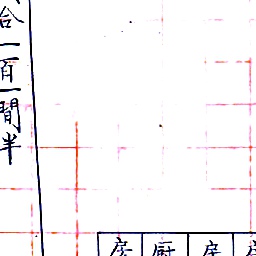 合一百一間半
房 厨 房